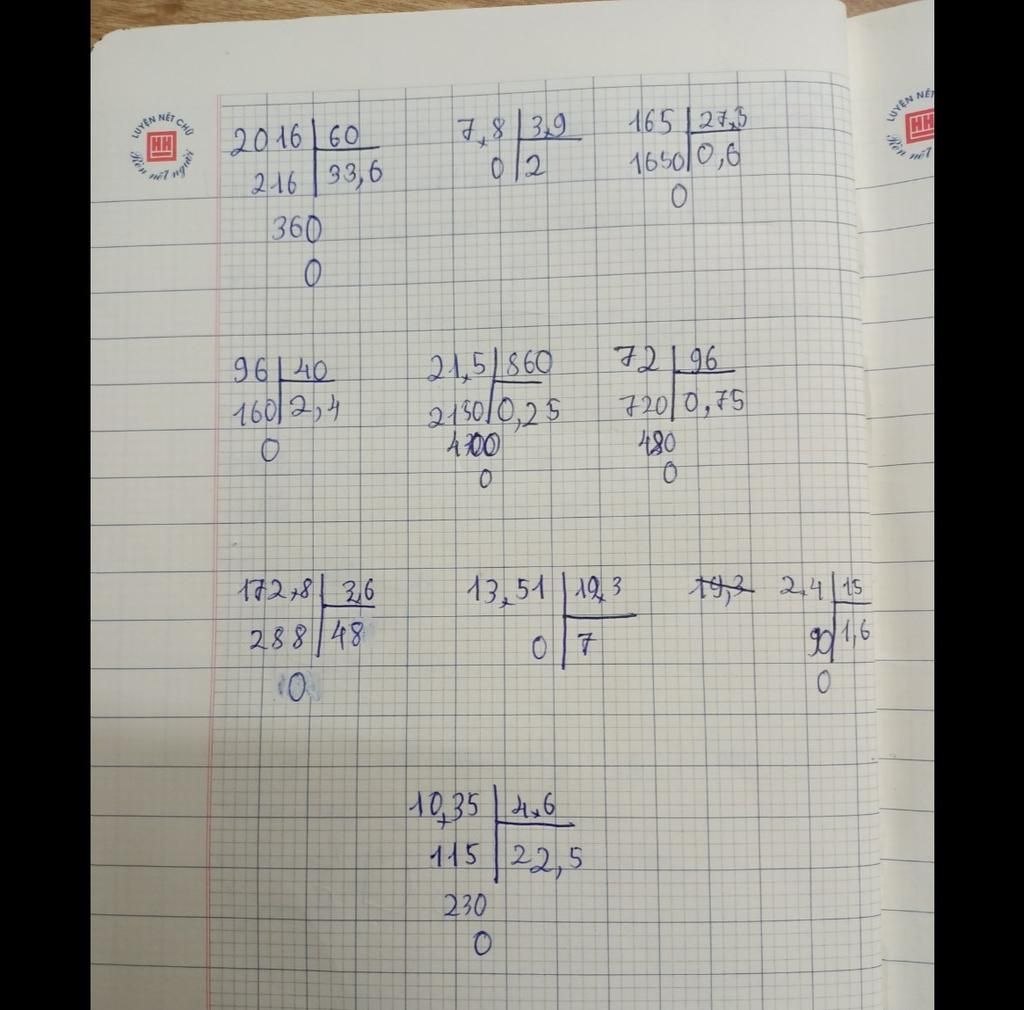 LUYỆN NÉT CHỮ
HH
Rèn nết người
LUYỆN NÉT
HH
Rèn nết
2016 60
216 33,6
360
0
7,8 3,9
0 2
165 27,5
1650 0,6
0
96 40
160 2,4
0
21,5 860
2150 0,25
4300
0
72 96
720 0,75
480
0
172,8 3,6
288 48
0
13,51 19,3
0 7
19,3
2,4 15
90 1,6
0
10,35 4,6
115 22,5
230
0